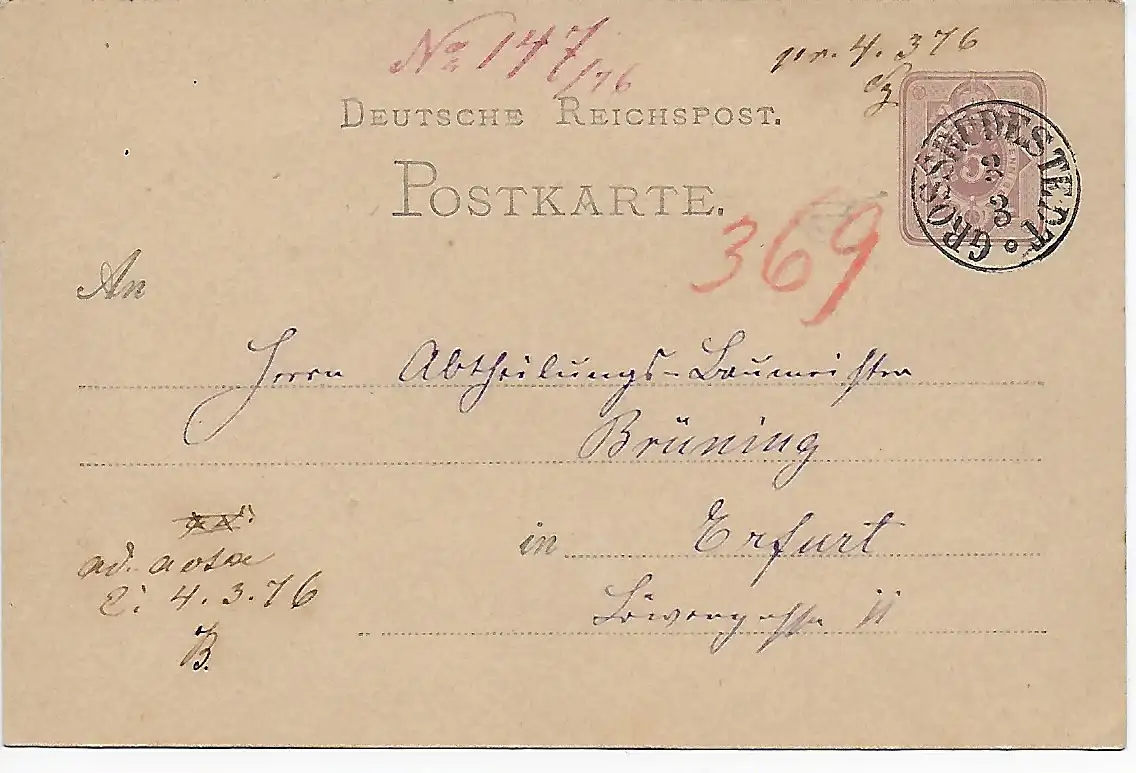 No 147/76
pr. 4. 3 76
DEUTSCHE REICHSPOST.
POSTKARTE.
GROSSRUDESTEDT
3
3
369
An
Herrn Abtheilungs-Baumeister
Brüning
in Erfurt
Löwengasse 11
ad. acta
E: 4.3.76
B.